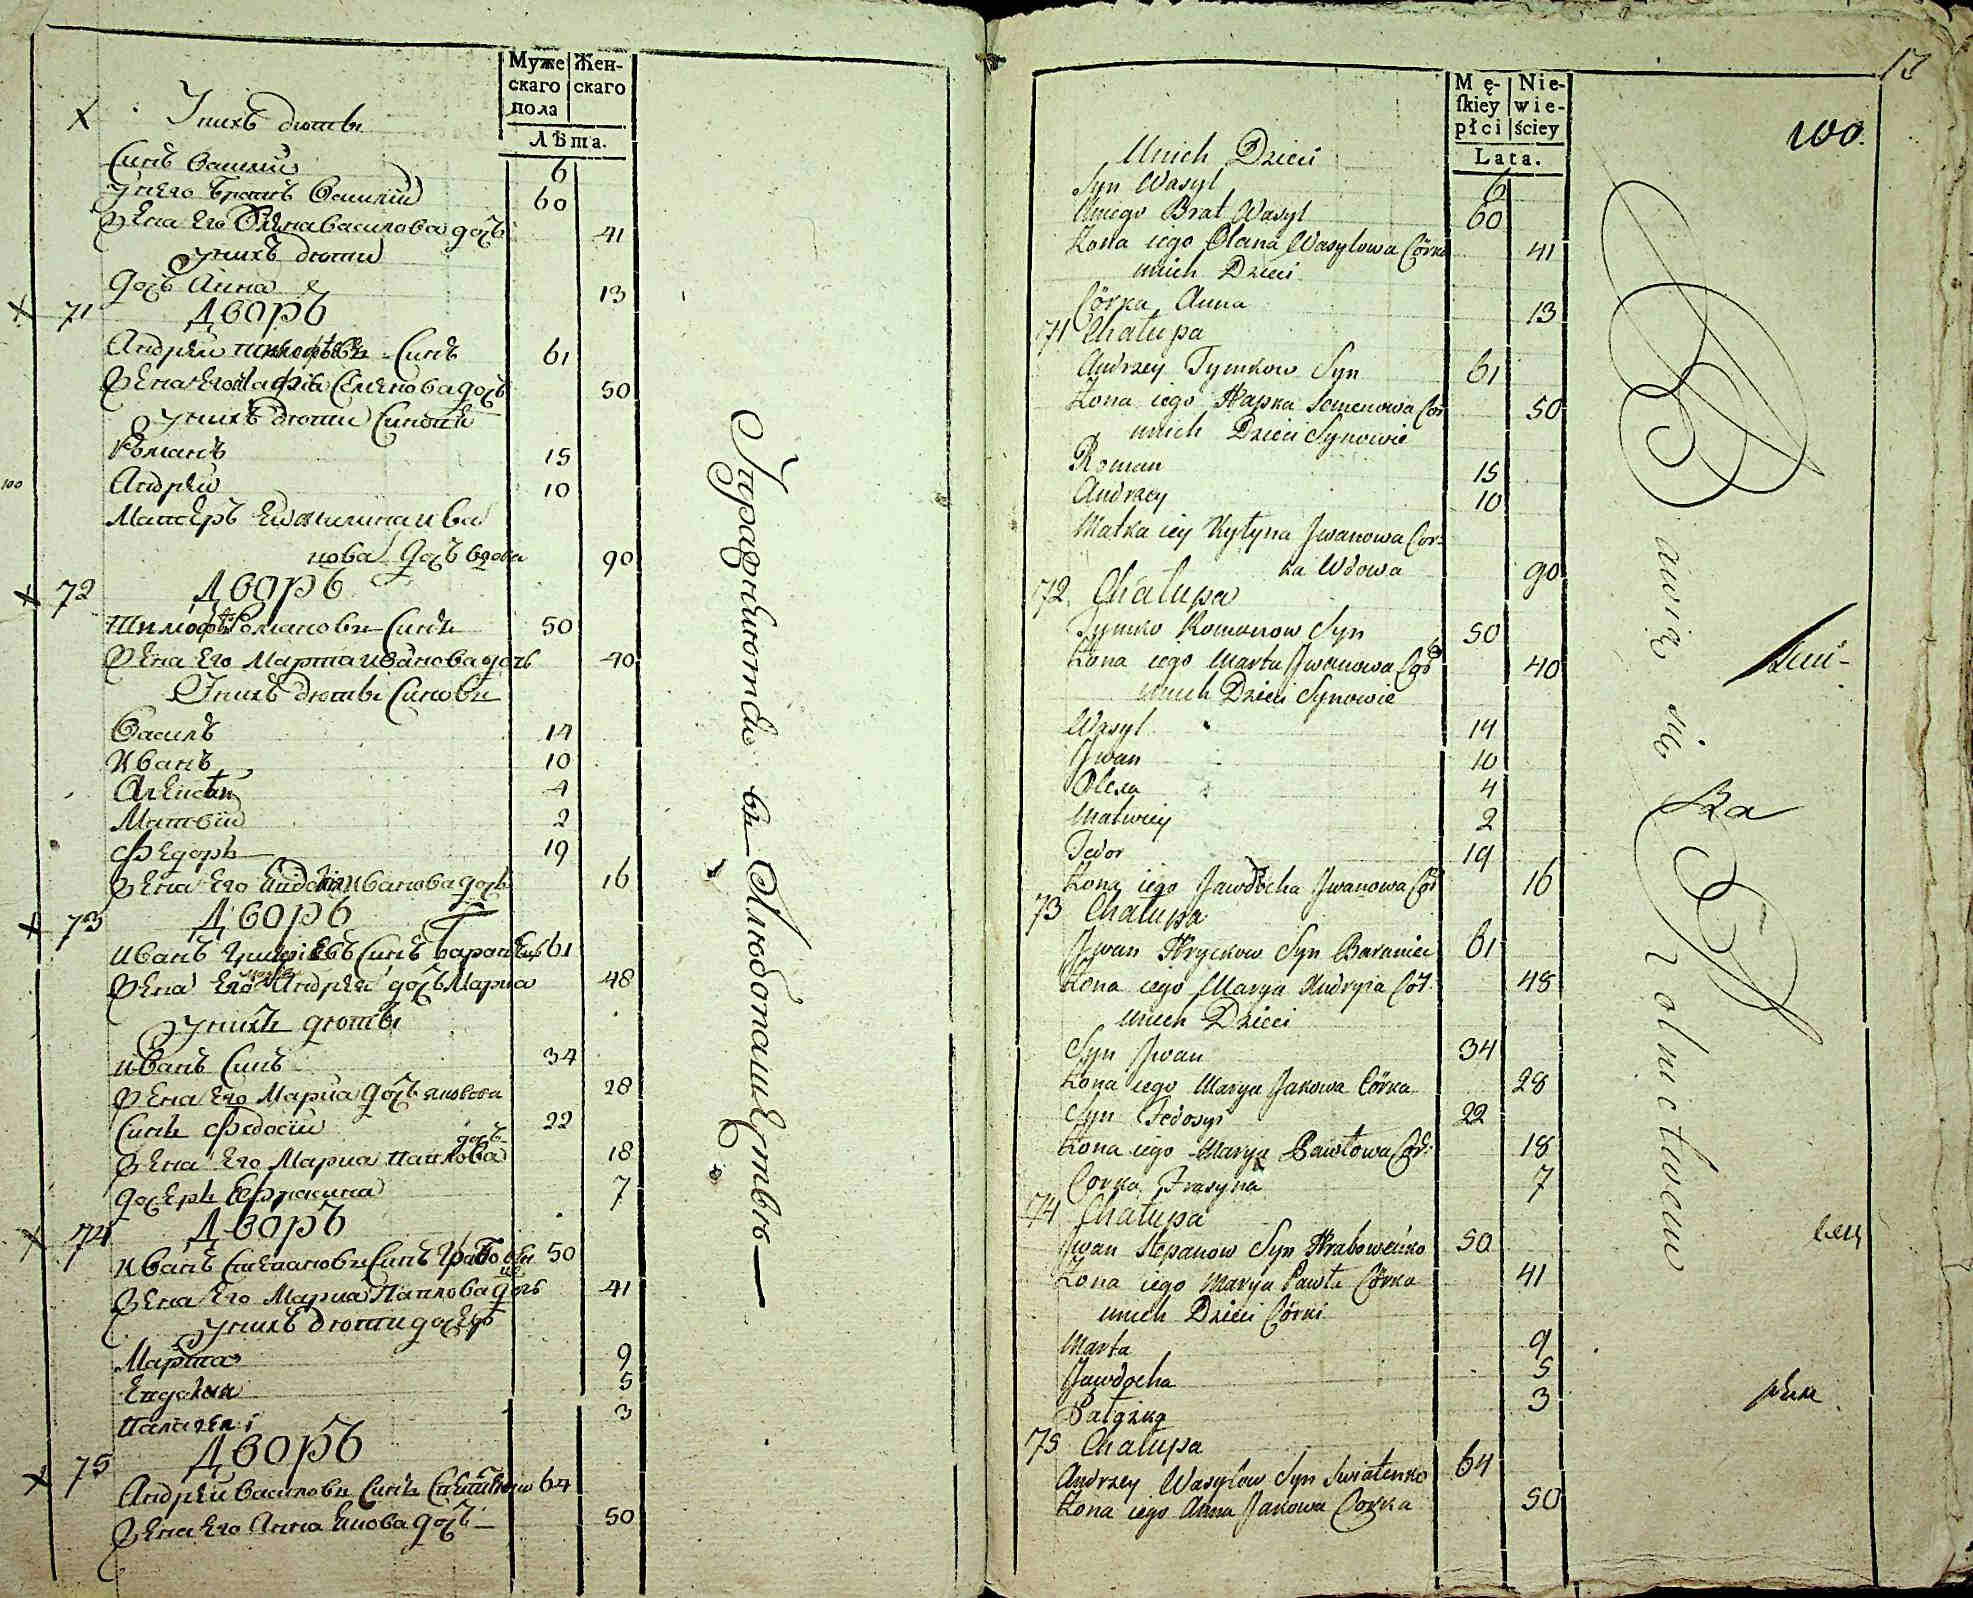 Муже
скаго
пола
Жен-
скаго
Лѣта.
У нихъ дѣти
Синъ Василий 6
У него Братъ Василий 60
Жена Его Олена Василова дочь 41
У нихъ дѣти
Дочь Анна 13
71 Дворъ
Андрей Синъ 61
Жена Его Семенова дочь 50
У нихъ дѣти Синове
Романъ 15
Андрей 10
Матеръ Ива
нова Дочъ вдова 90
72 Дворъ
Тимофѣй Романовъ Синъ 50
Жена Его Марта Иванова дочь 40
У нихъ дѣти Синови
Василь 14
Иванъ 10
Алексѣй 4
Матвій 2
Федоръ 19
Жена Его Евдокия Иванова дочь 16
73 Дворъ
Иванъ Синъ 61
Жена Его Андрея дочь Мариа 48
У нихъ дѣти
Иванъ Синъ 34
Жена Его Мариа Дочь Яковова 28
Синъ Федосий 22
Жена Его Мариа Павлова дочь 18
Дочерь 7
74 Дворъ
Иванъ Степановъ Синъ 50
Жена Его Мариа Павлова дочь 41
У нихъ дѣти дочерѣ
Марта 9
Евдокия 5
3
75 Дворъ
Андрей Василовъ Синъ 64
Жена Его Анна дочь 50
въ Хлебопашествѣ
100
Mę-
ſkiey
płci
Nie-
wie-
ściey
Lata.
17
100.
Unich Dzieci
Syn Wasyl 6
Unego Brat Wasyl 60
Zona iego Olana Wasylowa Córka 41
unich Dzieci
Córka Anna 13
71 Chałupa
Andrzey Tymkow Syn 61
Zona iego Hapka Semenowa Cor 50
unich Dzieci Synowie
Roman 15
Andrzey 10
Matka iey Kytyna Jwanowa Cor-
ka Wdowa 90
72 Chałupa
Tymko Romanow Syn 50
Zona iego Marta Jwanowa Cór 40
unich Dzieci Synowie
Wasyl 14
Jwan 10
Olexa 4
Matwiey 2
Fedor 19
Zona iego Jawdocha Jwanowa Cór 16
73 Chałupa
Jwan Hryckow Syn Baraniec 61
Zona iego Marya Andryia Cór. 48
unich Dzieci
Syn Jwan 34
Zona iego Marya Jakowa Córka 28
Syn Fedosyi 22
Zona iego Marya Pawłowa Cór: 18
Corka Frasyna 7
74 Chałupa
Jwan Stepanow Syn Hrabowećko 50
Zona iego Marya Pawła Córka 41
unich Dzieci Córki
Marta 9
Jawdocha 5
Pałażka 3
75 Chałupa
Andrzey Wasylow Syn Swiatenko 64
Zona iego Anna Jakowa Corka 50
Bawią się Rolnictwem